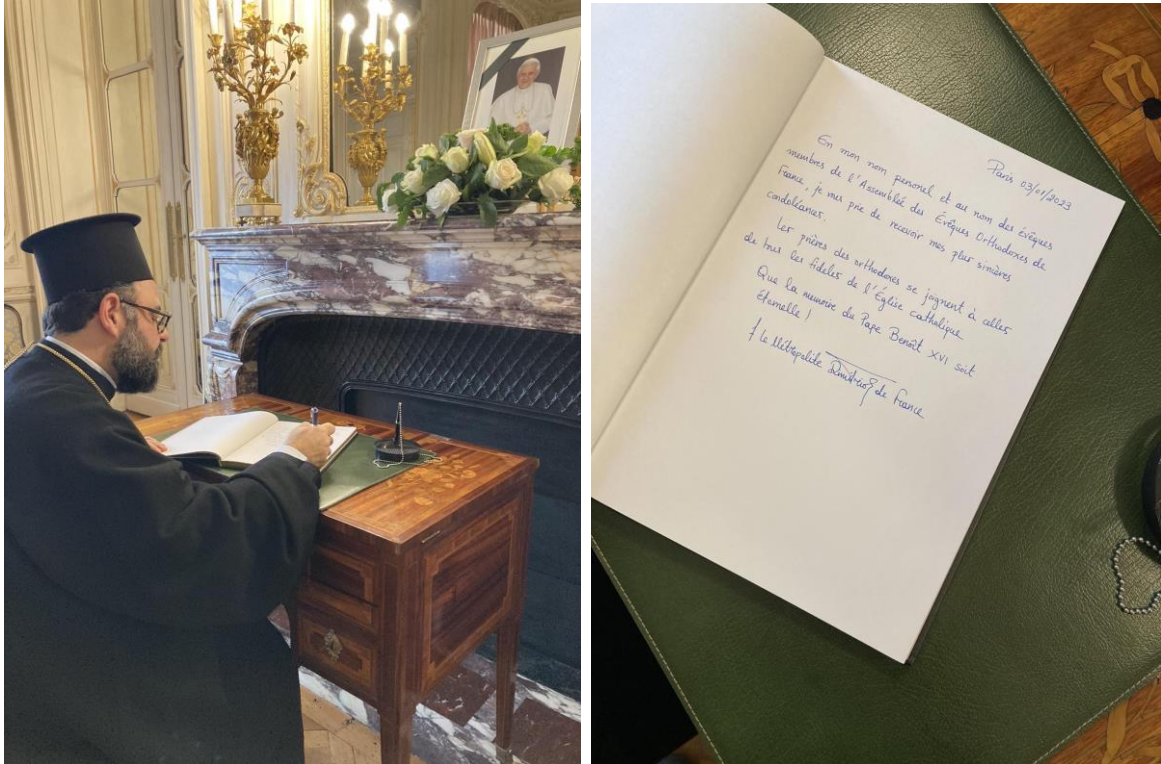 Paris 03/01/2023
En mon nom personel et au nom des évêques
membres de l'Assemblée des Évêques Orthodoxes de
France, je vous prie de recevoir mes plus sincères
condoléances.
Les prières des orthodoxes se joignent à celles
de tous les fideles de l'Église catholique
Que la memoire du Pape Benoît XVI soit
éternelle !
† Le Métropolite Dimitrios de France